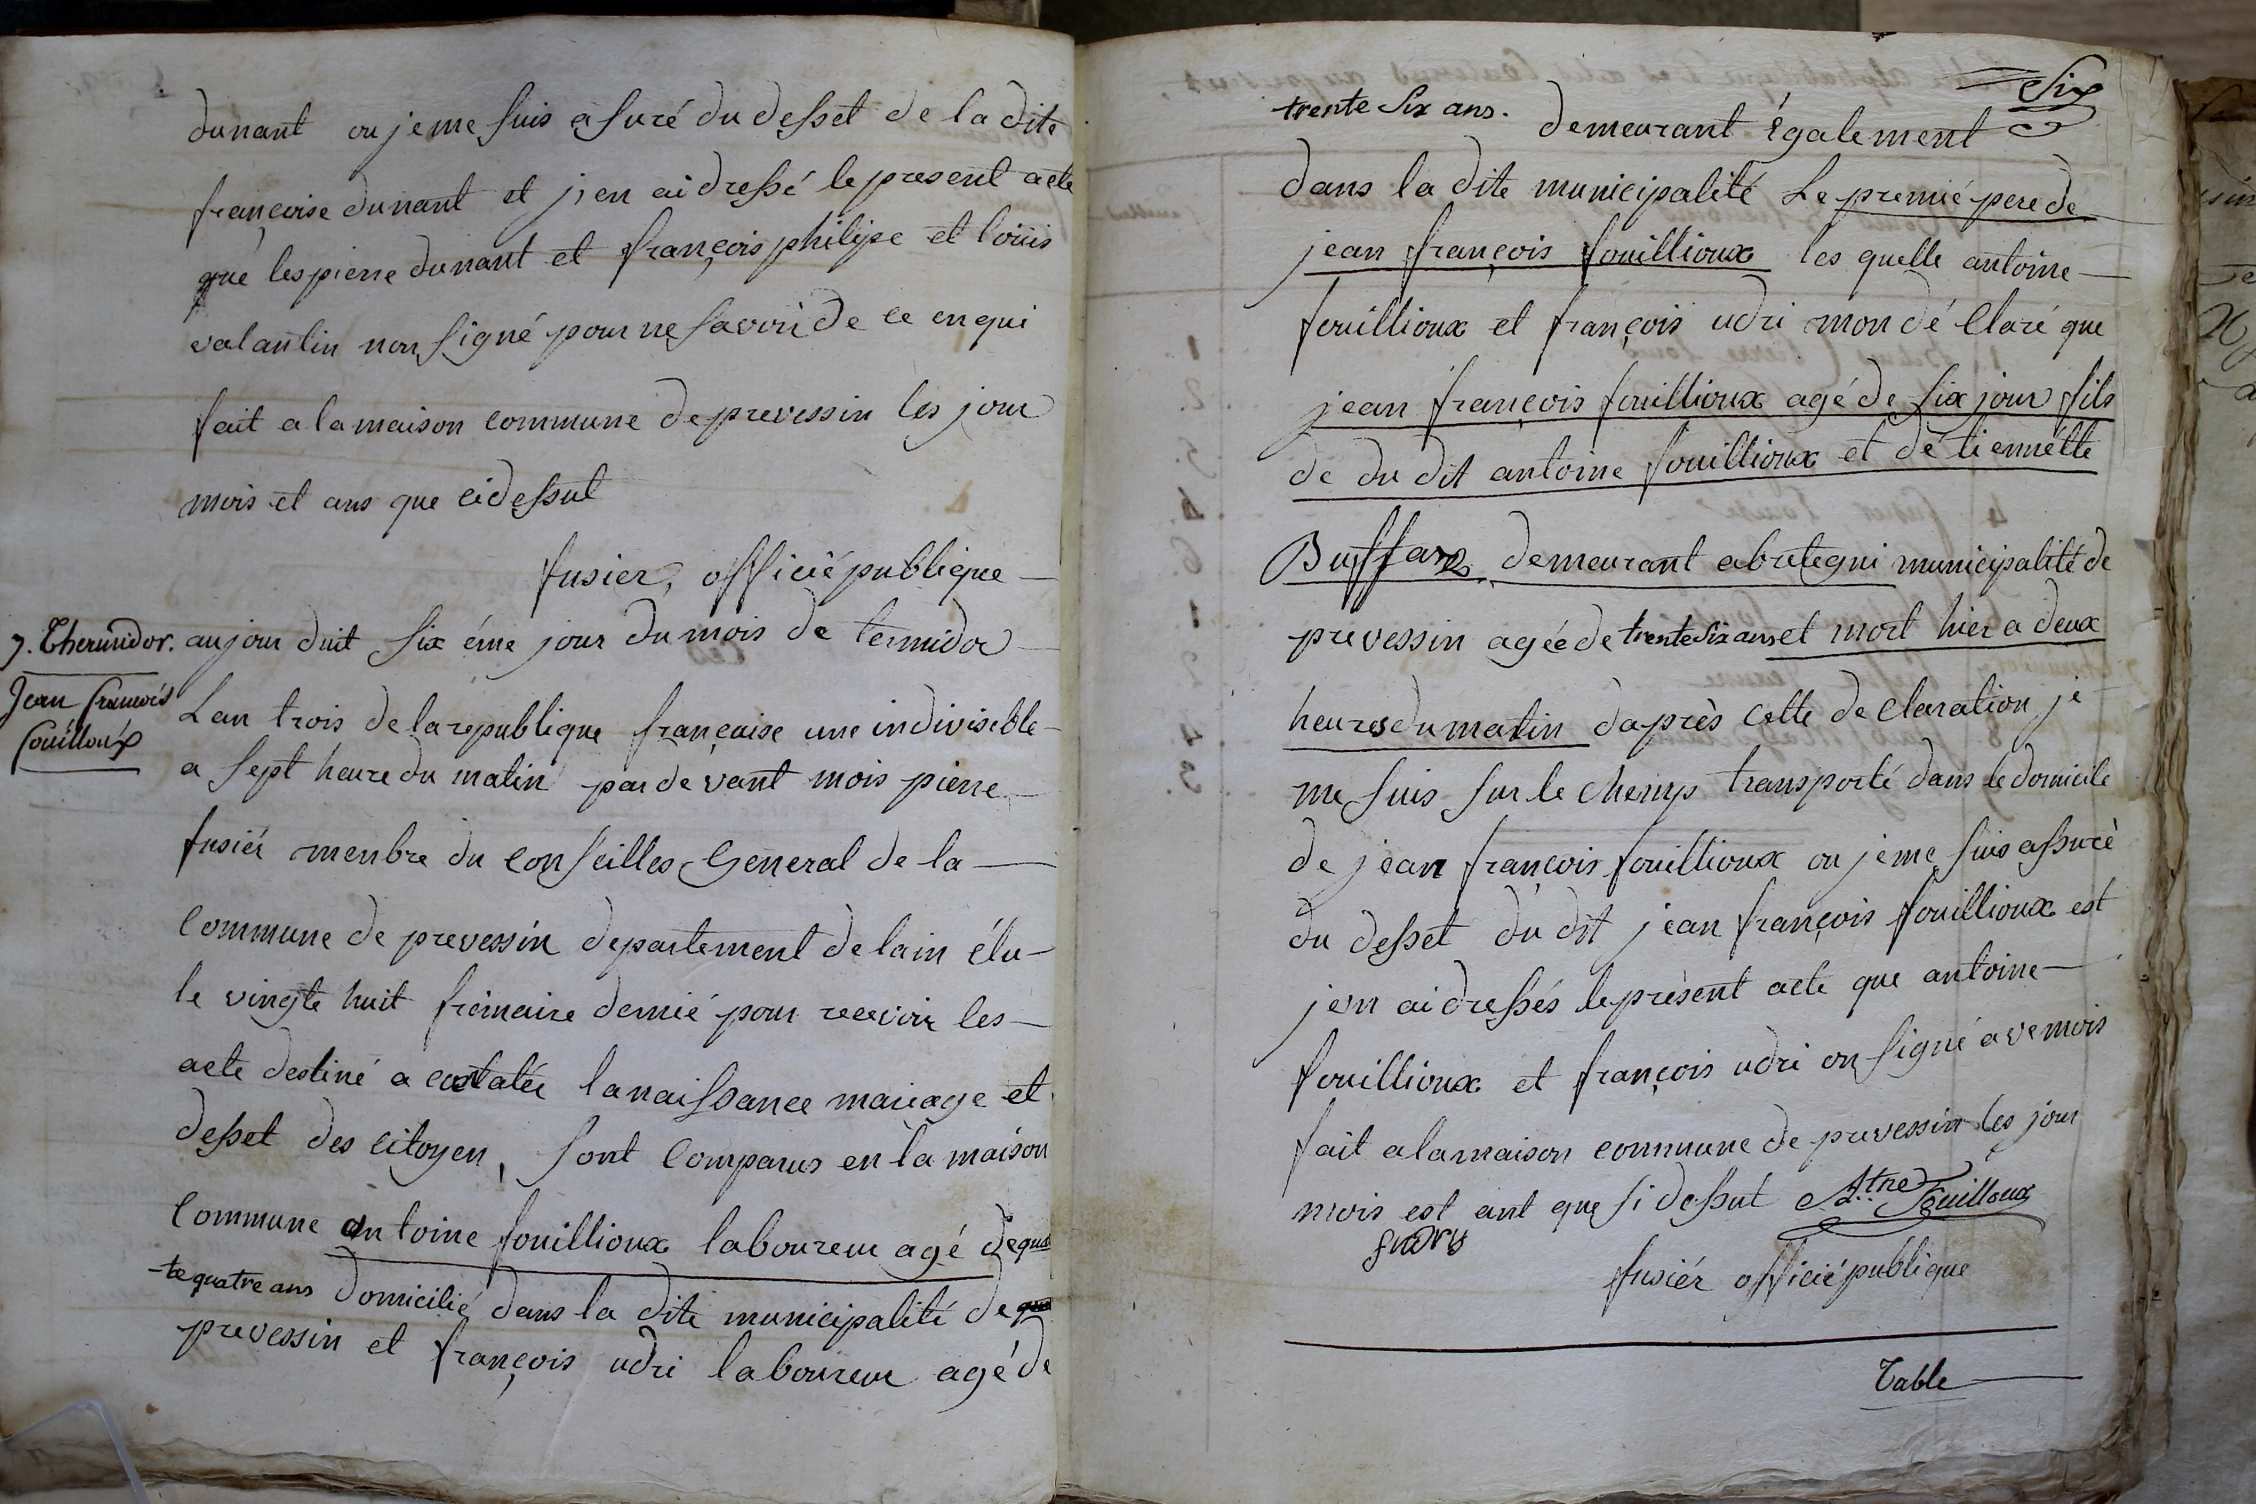 dunant ou je me suis asuré du desset de la dite
françoise dunant et j'en ai dressé le present acte
que les pierre dunant et françois philipe et louis
valantin non signé pour ne savoir de ce enqui
fait a la maison commune de prevessin les jour
mois et ans que cidessut
fusier, officié publique
7. Thermidor.
Jean francois
fouilloux
aujour duit six éme jour du mois de termidor
Lan trois de la republique française une indiviseble
a sept heure du matin par devant mois pierre
fusiér menbre du conseilles General de la
commune de prevessin departement de lain élu
le vingte huit frimaire dernié pour recevoir les
acte destiné a constatér la naissance mariage et
desset des citoyen, sont comparus en la maison
commune antoine fouillioux laboureur agé de qua
-te quatre ans domicilié dans la dite municipalité de
prevessin et françois udri laboureur agé de
six
trente six ans. demeurant également
dans la dite municipalité Le premié pere de
jean françois fouillioux les quelle antoine
fouillioux et françois udri mon dé claré que
jean françois fouillioux agé de six jour fils
de du dit antoine fouillioux et détiennétte
Buffar demeurant abretegni municipalité de
prevessin agée de trente six ans et mort hier a deux
heures du matin daprès cette declaration je
me suis sur le chemp transporté dans le domicile
de jean françois fouillioux ou je me suis assuré
du desset du dit jean françois fouillioux est
jen ai dressés le présent acte que antoine
fouillioux et françois udri on signé avemois
fait a la maison commune de prevessin les jour
mois est ant que si dessut Atne Fouilloux
fudry
fusiér officié publique
Table